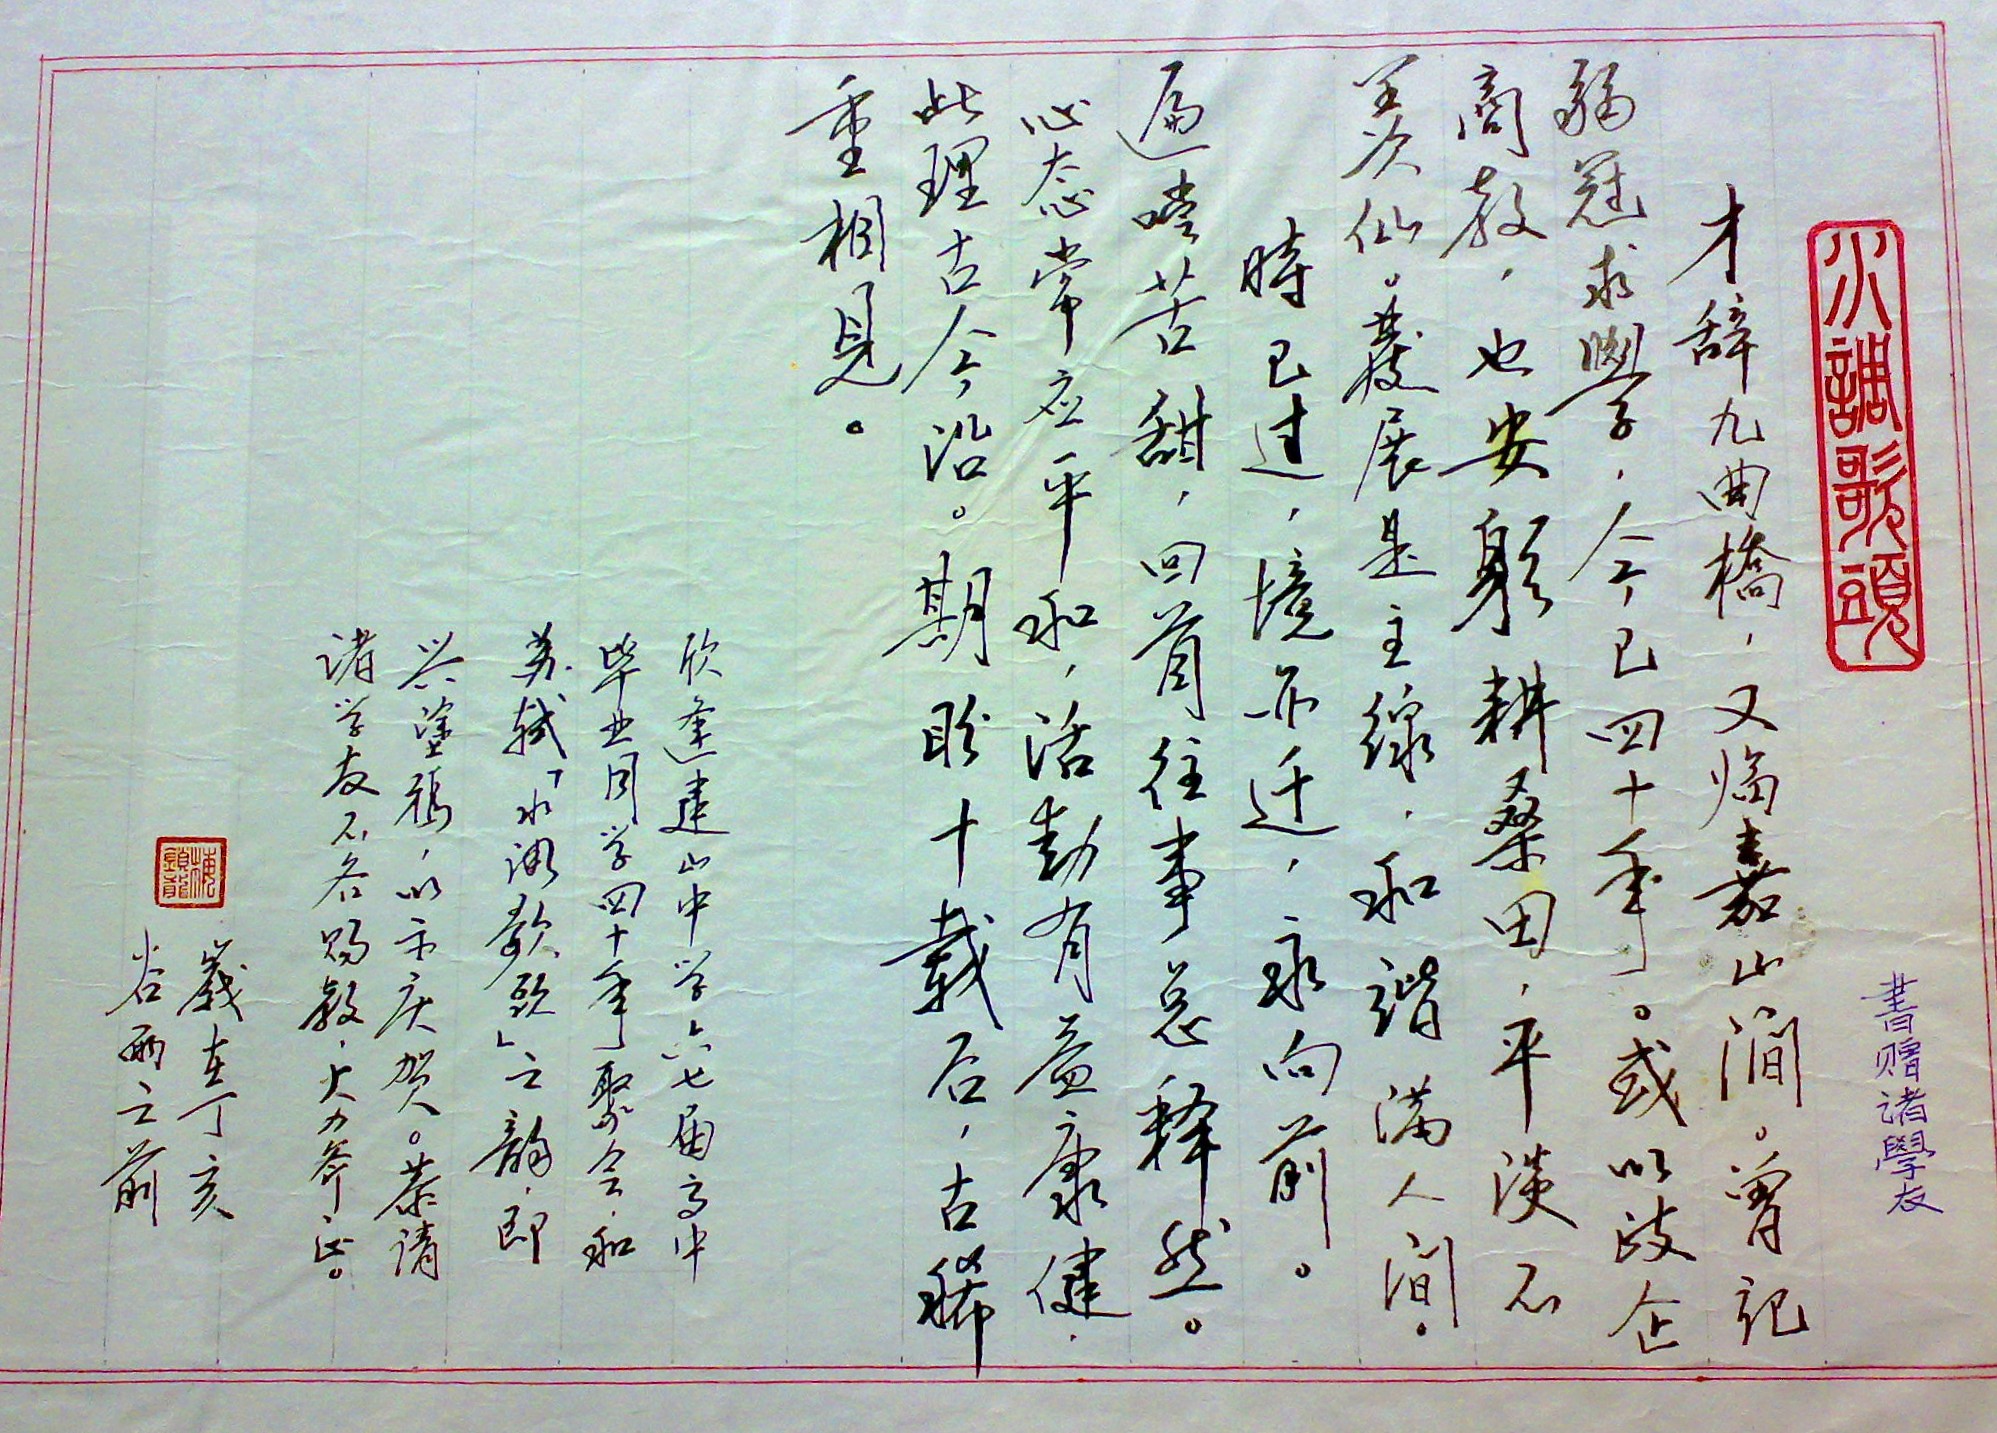 水調歌頭
書赠诸學友
才辞九曲橋，又临嘉山澗。曾记
弱冠求學，今已四十年。或以政企
商教，也安躬耕桑田，平淡不
羡仙。發展是主線，和谐满人间。
時已过，境亦迁，永向前。
遍嚐苦甜，回首往事总释然。
心态常应平和，活動有益康健，
此理古今沿。期盼十载后，古稀
重相見。
欣逢建山中学六七届高中
毕业同学四十年聚会，和
苏轼「水调歌头」之韵，即
兴塗鸦，以示庆贺。恭请
诸学友不吝赐教，大力斧正。
歲在丁亥
谷雨之前